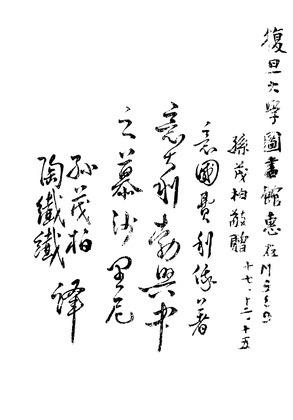 復旦大學圖書館惠存
孫茂柏敬贈
十七·十二·十五
意國費利俵著
意大利勃興中
之慕沙里尼
孫茂柏
陶纖纖 譯